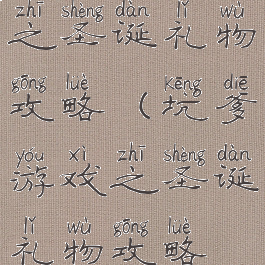 zhī shèng dàn lǐ wù
之圣诞礼物
gōng lüè kēng diē
攻略（坑爹
yóu xì zhī shèng dàn
游戏之圣诞
lǐ wù gōng lüè
礼物攻略